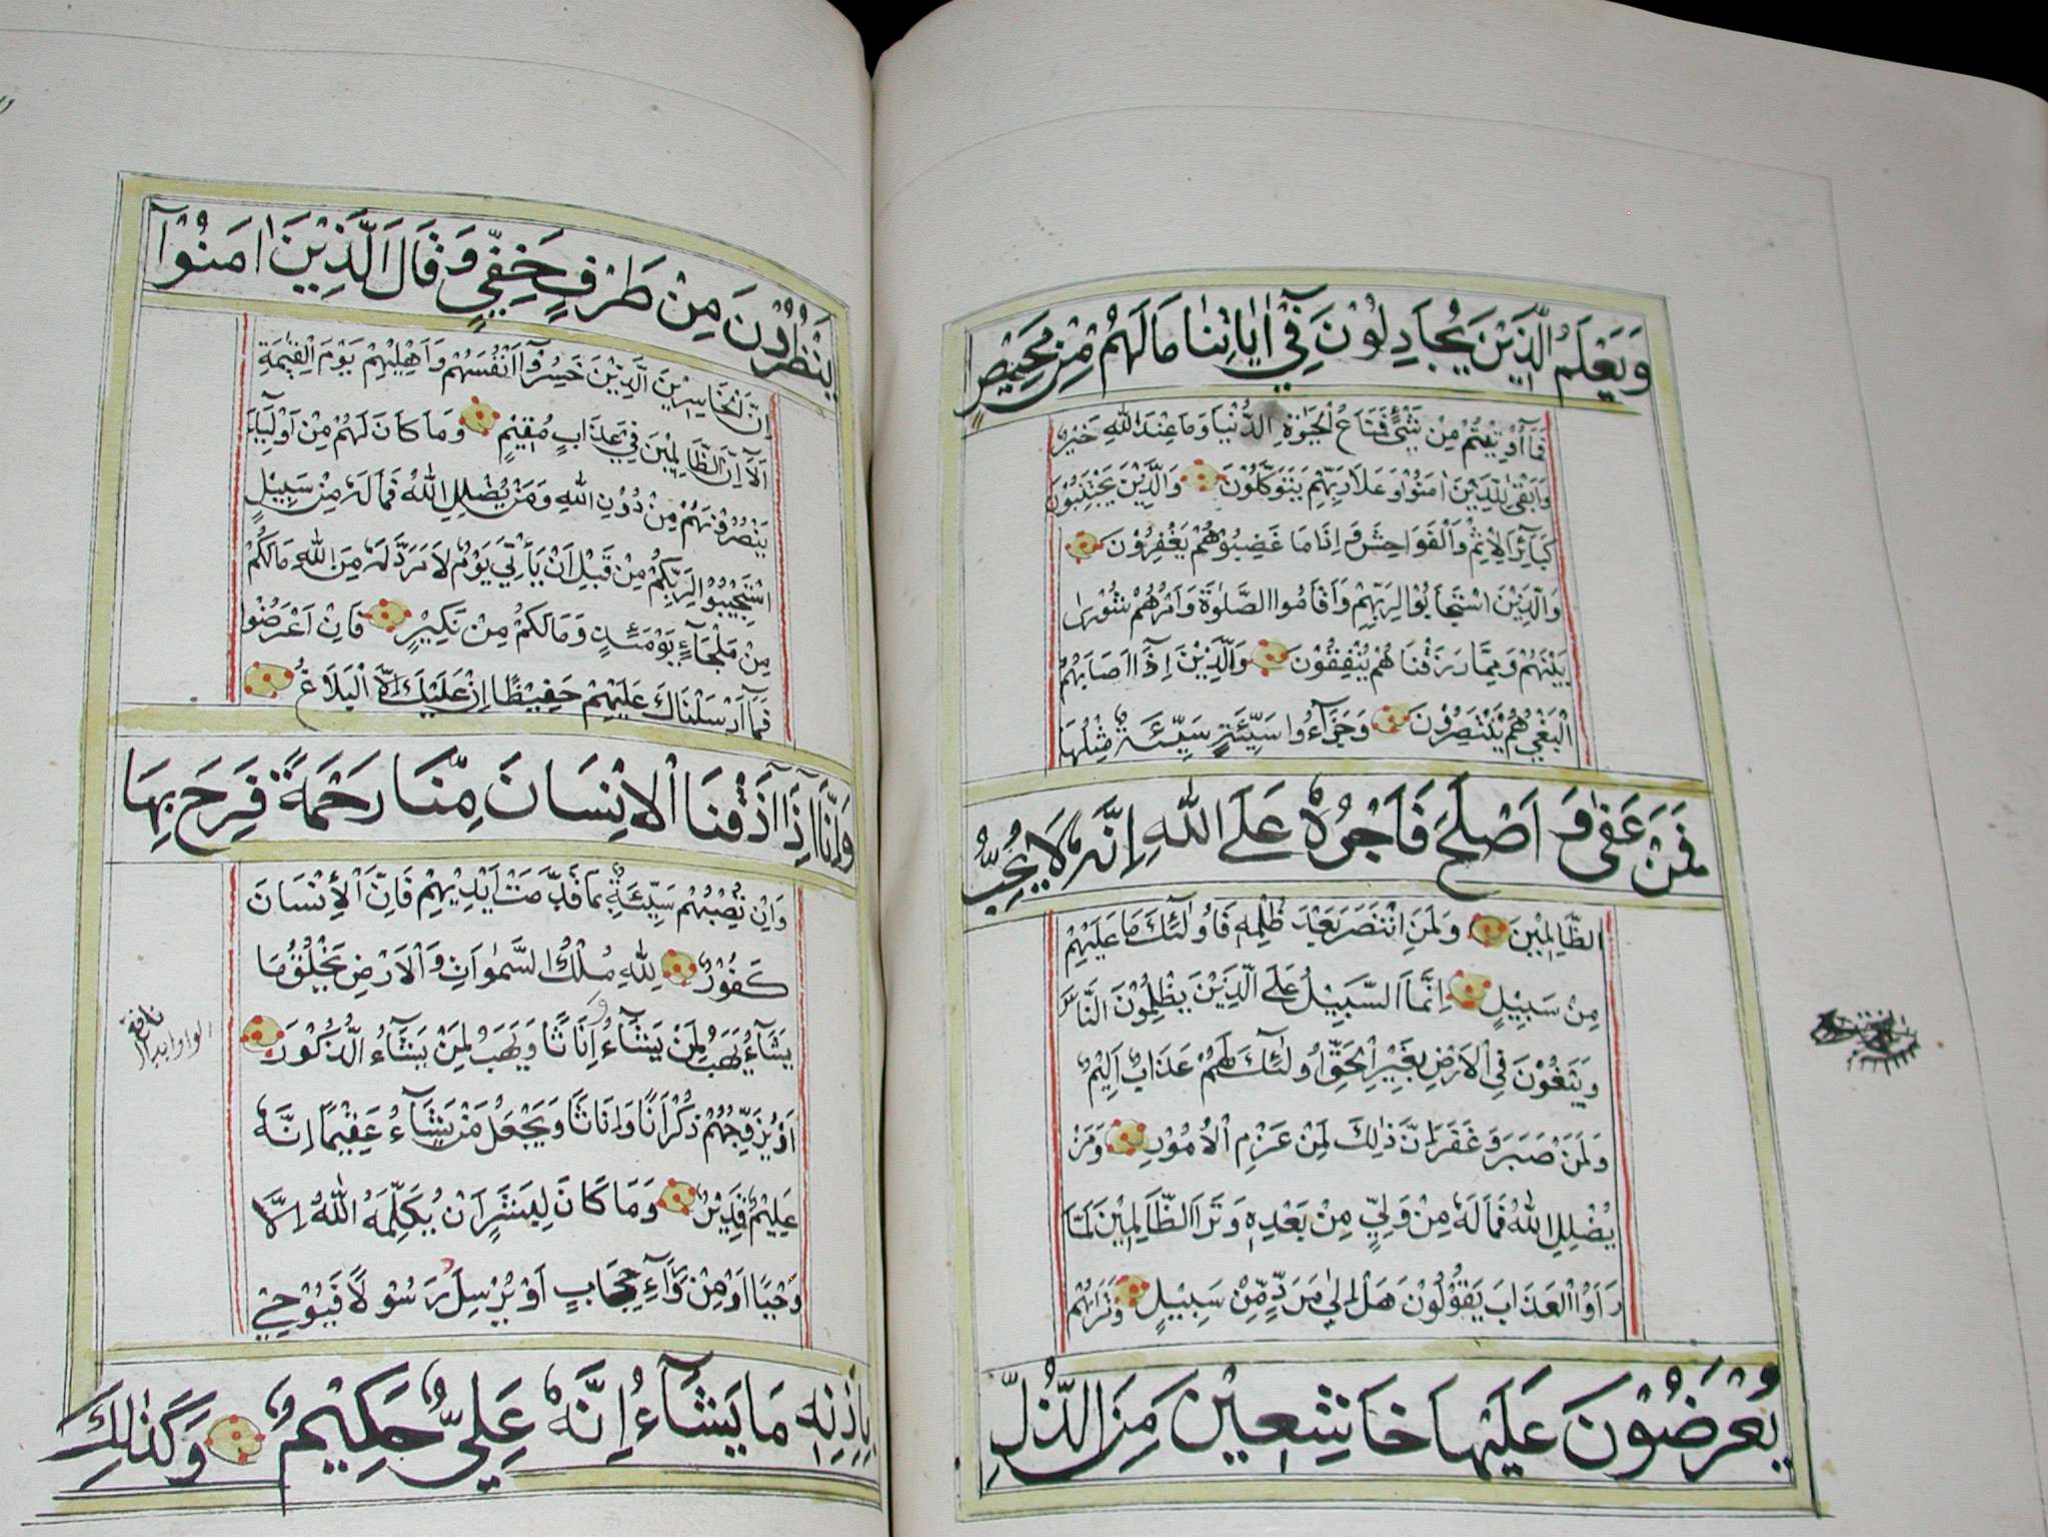 وَيَعْلَمَ الَّذِيْنَ يُجَادِلُوْنَ فِيْٓ اٰيَاتِنٰا مَا لَهُمْ مِنْ مَحِيْصٍ
فَمَآ اُوْتِيْتُمْ مِنْ شَيْءٍ فَمَتَاعُ الْحَيٰوةِ الدُّنْيَا وَمَا عِنْدَ اللّٰهِ خَيْرٌ
وَاَبْقٰى لِلَّذِيْنَ اٰمَنُوْا وَعَلٰى رَبِّهِمْ يَتَوَكَّلُوْنَ وَالَّذِيْنَ يَجْتَنِبُوْنَ
كَبَآئِرَ الْاِثْمِ وَالْفَوَاحِشَ وَ اِذَا مَا غَضِبُوْا هُمْ يَغْفِرُوْنَ
وَالَّذِيْنَ اسْتَجَابُوْا لِرَبِّهِمْ وَاَقَامُوا الصَّلٰوةَ وَاَمْرُهُمْ شُوْرٰى
بَيْنَهُمْ وَمِمَّا رَزَقْنَا هُمْ يُنْفِقُوْنَ وَالَّذِيْنَ اِذَآ اَصَابَهُمُ
الْبَغْيُ هُمْ يَنْتَصِرُوْنَ وَجَزَآءُوا سَيِّئَةٍ سَيِّئَةٌ مِثْلُهَا
فَمَنْ عَفٰى وَ اَصْلَحَ فَاَجْرُهٗ عَلَى اللّٰهِ اِنَّهٗ لَا يُحِبُّ
الظَّالِمِيْنَ وَلَمَنِ انْتَصَرَ بَعْدَ ظُلْمِهٖ فَاُولٰٓئِكَ مَا عَلَيْهِمْ
مِنْ سَبِيْلٍ اِنَّمَا السَّبِيْلُ عَلَى الَّذِيْنَ يَظْلِمُوْنَ النَّاسَ
وَيَبْغُوْنَ فِي الْاَرْضِ بِغَيْرِ الْحَقِّ اُولٰٓئِكَ لَهُمْ عَذَابٌ اَلِيْمٌ
وَلَمَنْ صَبَرَ وَ غَفَرَ اِنَّ ذٰلِكَ لَمِنْ عَزْمِ الْاُمُوْرِ وَمَنْ
يُضْلِلِ اللّٰهُ فَمَا لَهٗ مِنْ وَلِيٍّ مِنْ بَعْدِهٖ وَتَرَى الظَّالِمِيْنَ لَمَّا
رَاَوُا الْعَذَابَ يَقُوْلُوْنَ هَلْ اِلٰى مَرَدٍّ مِّنْ سَبِيْلٍ وَتَرٰيهُمْ
يُعْرَضُوْنَ عَلَيْهَا خَاشِعِيْنَ مِنَ الذُّلِّ
يَنْظُرُوْنَ مِنْ طَرْفٍ خَفِيٍّ وَ قَالَ الَّذِيْنَ اٰمَنُوْآ
اِنَّ الْخَاسِرِيْنَ الَّذِيْنَ خَسِرُوْٓا اَنْفُسَهُمْ وَاَهْلِيْهِمْ يَوْمَ الْقِيٰمَةِ
اَلَآ اِنَّ الظَّالِمِيْنَ فِيْ عَذَابٍ مُقِيْمٍ وَمَا كَانَ لَهُمْ مِنْ اَوْلِيَآءَ
يَنْصُرُوْنَهُمْ مِنْ دُوْنِ اللّٰهِ وَمَنْ يُضْلِلِ اللّٰهُ فَمَا لَهٗ مِنْ سَبِيْلٍ
اِسْتَجِيْبُوْا لِرَبِّكُمْ مِنْ قَبْلِ اَنْ يَأْتِيَ يَوْمٌ لَا مَرَدَّ لَهٗ مِنَ اللّٰهِ مَا لَكُمْ
مِنْ مَلْجَاٍ يَوْمَئِذٍ وَمَا لَكُمْ مِنْ نَكِيْرٍ فَاِنْ اَعْرَضُوْا
فَمَآ اَرْسَلْنَاكَ عَلَيْهِمْ حَفِيْظًا اِنْ عَلَيْكَ اِلَّا الْبَلَاغُ
وَاِنَّآ اِذَآ اَذَقْنَا الْاِنْسَانَ مِنَّا رَحْمَةً فَرِحَ بِهَا
وَاِنْ تُصِبْهُمْ سَيِّئَةٌ بِمَا قَدَّمَتْ اَيْدِيْهِمْ فَاِنَّ الْاِنْسَانَ
كَفُوْرٌ لِلّٰهِ مُلْكُ السَّمٰوَاتِ وَالْاَرْضِ يَخْلُقُ مَا
يَشَآءُ يَهَبُ لِمَنْ يَشَآءُ اِنَاثًا وَ يَهَبُ لِمَنْ يَشَآءُ الذُّكُوْرَ
اَوْ يُزَوِّجُهُمْ ذُكْرَانًا وَاِنَاثًا وَيَجْعَلُ مَنْ يَشَآءُ عَقِيْمًا اِنَّهٗ
عَلِيْمٌ قَدِيْرٌ وَمَا كَانَ لِبَشَرٍ اَنْ يُكَلِّمَهُ اللّٰهُ اِلَّا
وَحْيًا اَوْ مِنْ وَرَآءِ حِجَابٍ اَوْ يُرْسِلَ رَسُوْلًا فَيُوْحِيَ
بِاِذْنِهٖ مَا يَشَآءُ اِنَّهٗ عَلِيٌّ حَكِيْمٌ وَكَذٰلِكَ
نافع